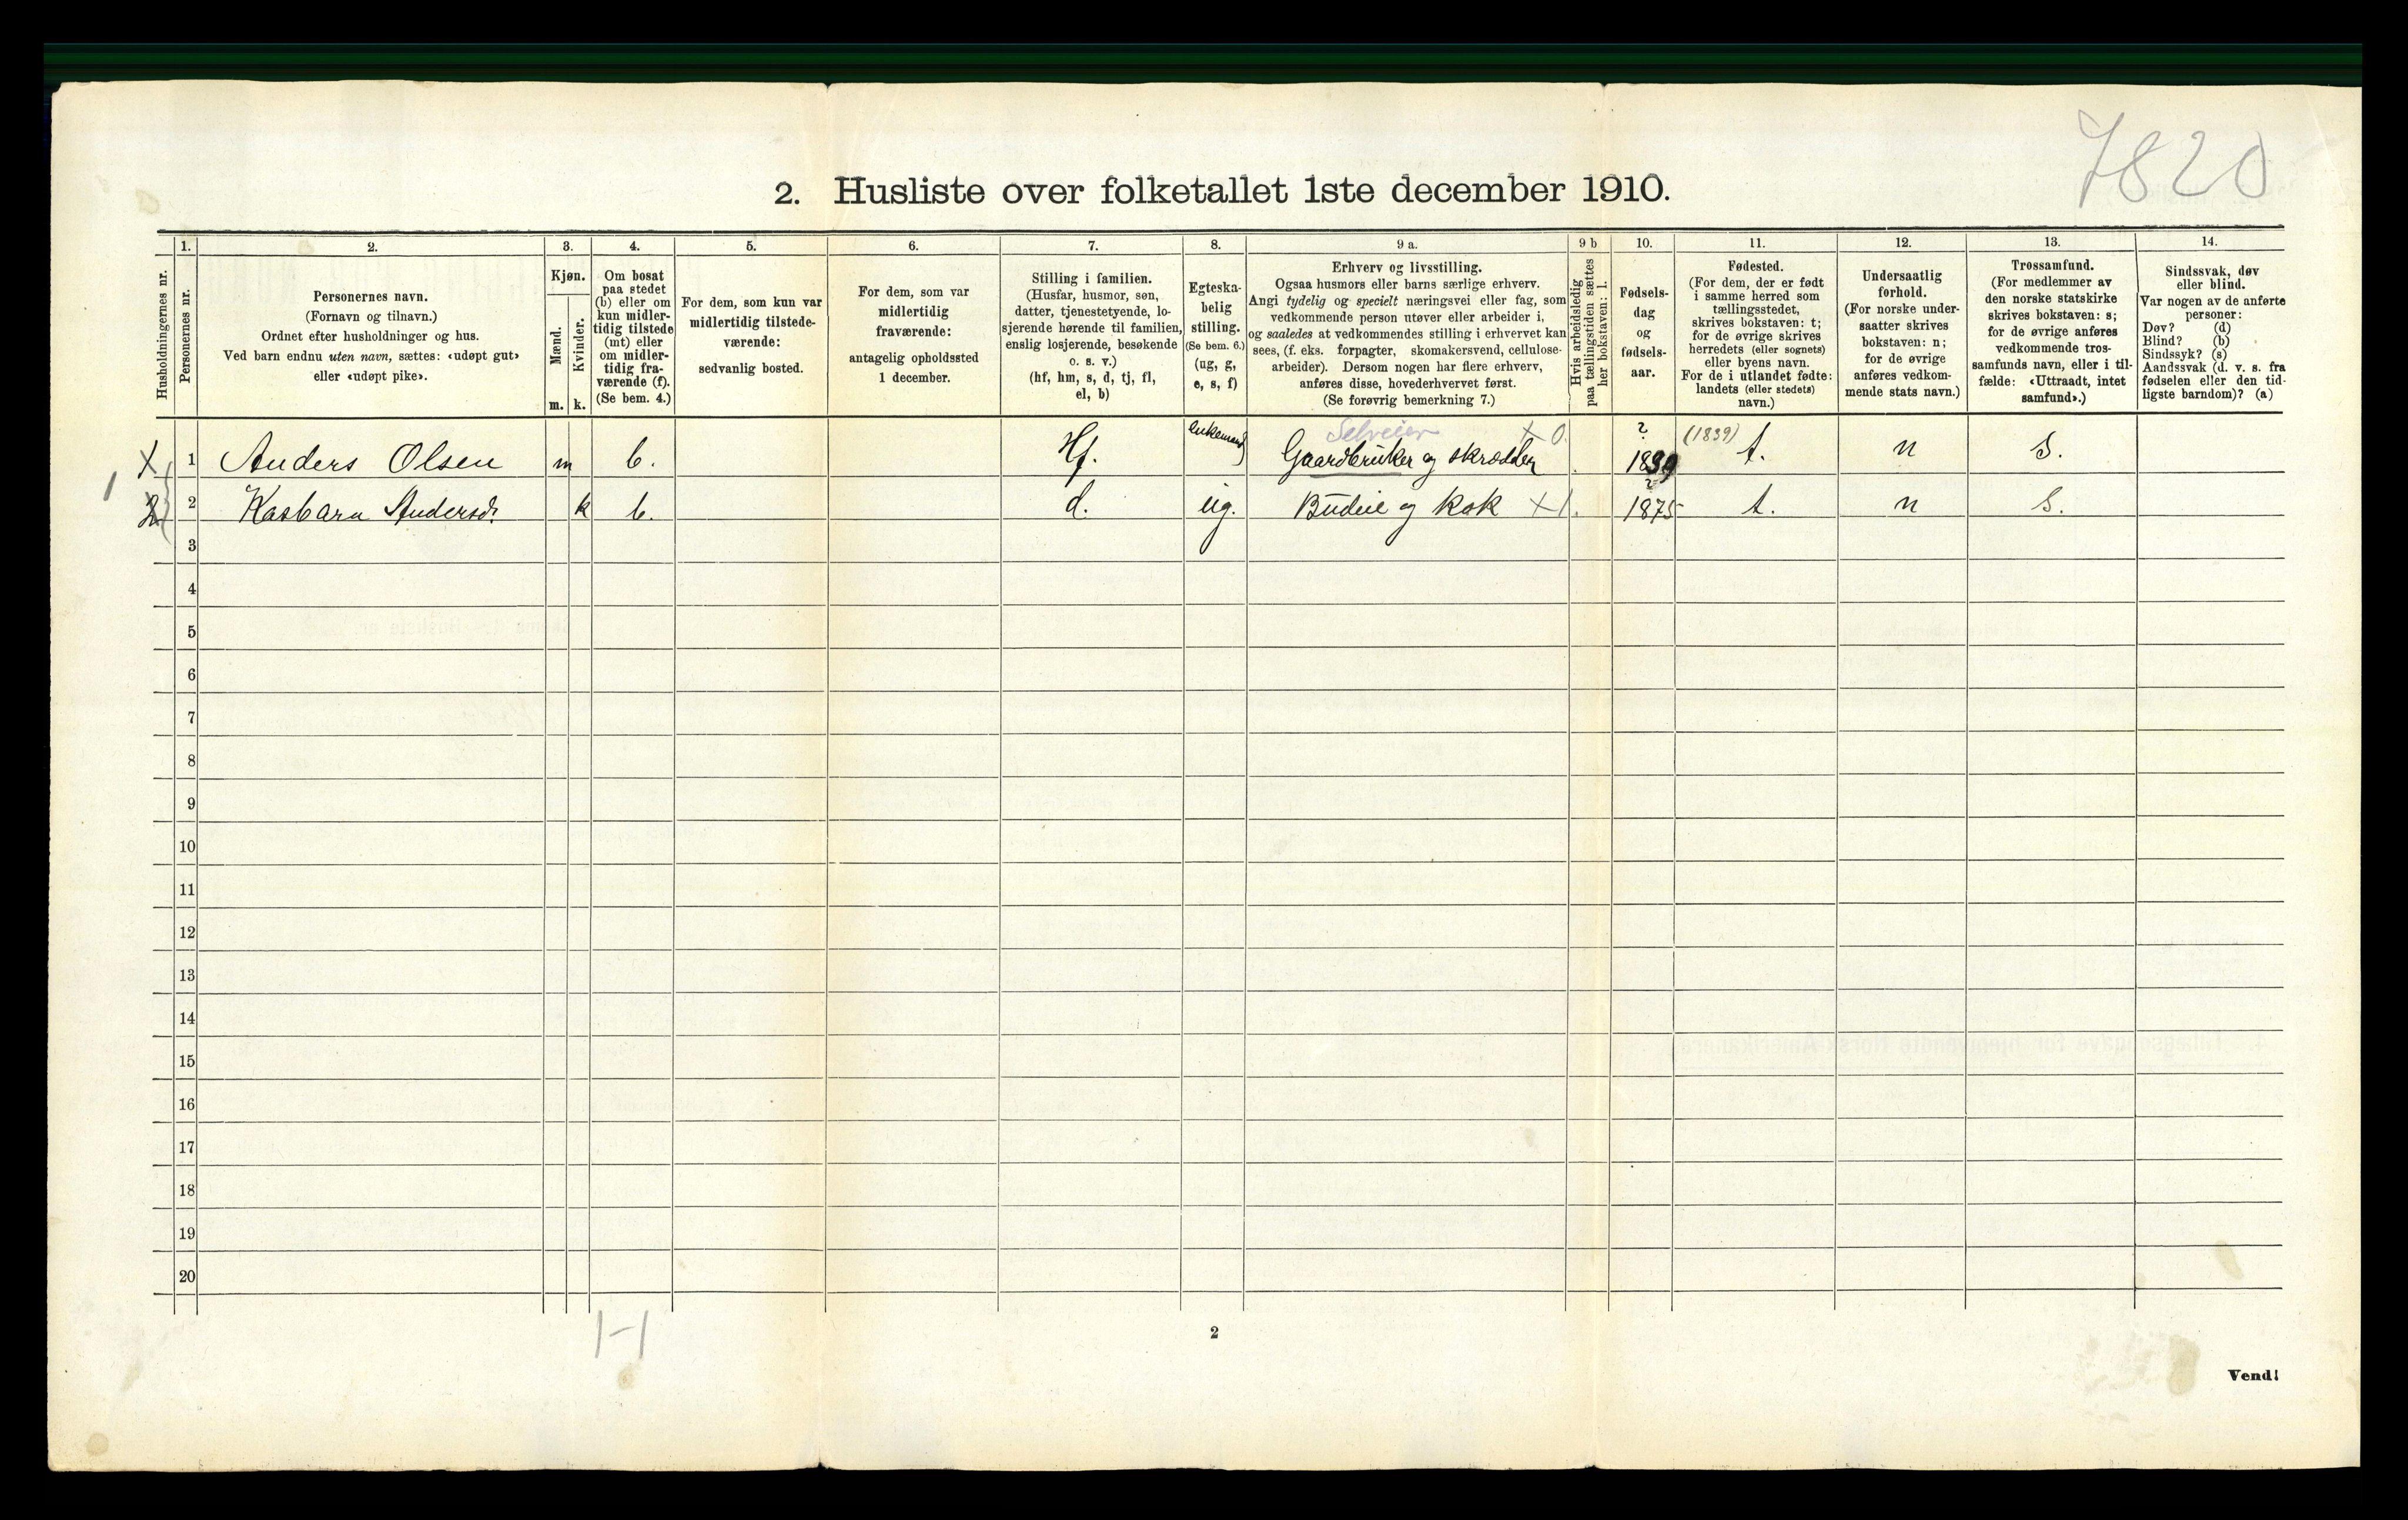 7820
2. Husliste over folketallet 1ste december 1910.
Husholdningernes nr.
1.
Personernes nr.
2.
Personernes navn.
(Fornavn og tilnavn.)
Ordnet efter husholdninger og hus.
Ved barn endnu uten navn, sættes: «udøpt gut»
eller «udøpt pike».
3.
Kjøn.
Mænd.
Kvinder.
m. k.
4.
Om bosat
paa stedet
(b) eller om
kun midler-
tidig tilstede
(mt) eller
om midler-
tidig fra-
værende (f).
(Se bem. 4.)
5.
For dem, som kun var
midlertidig tilstede-
værende:
sedvanlig bosted.
6.
For dem, som var
midlertidig
fraværende:
antagelig opholdssted
1 december.
7.
Stilling i familien.
(Husfar, husmor, søn,
datter, tjenestetyende, lo-
sjerende hørende til familien,
enslig losjerende, besøkende
o. s. v.)
(hf, hm, s, d, tj, fl,
el, b)
8.
Egteska-
belig
stilling.
(Se bem. 6.)
(ug, g,
e, s, f)
9 a.
Erhverv og livsstilling.
Ogsaa husmors eller barns særlige erhverv.
Angi tydelig og specielt næringsvei eller fag, som
vedkommende person utøver eller arbeider i,
og saaledes at vedkommendes stilling i erhvervet kan
sees, (f. eks. forpagter, skomakersvend, cellulose-
arbeider). Dersom nogen har flere erhverv,
anføres disse, hovederhvervet først.
(Se forøvrig bemerkning 7.)
9 b
Hvis arbeidsledig
paa tællingstiden sættes
her bokstaven: l.
10.
Fødsels-
dag
og
fødsels-
aar.
11.
Fødested.
(For dem, der er født
i samme herred som
tællingsstedet,
skrives bokstaven: t;
for de øvrige skrives
herredets (eller sognets)
eller byens navn.
For de i utlandet fødte:
landets (eller stedets)
navn.)
12.
Undersaatlig
forhold.
(For norske under-
saatter skrives
bokstaven: n;
for de øvrige
anføres vedkom-
mende stats navn.)
13.
Trossamfund.
(For medlemmer av
den norske statskirke
skrives bokstaven: s;
for de øvrige anføres
vedkommende tros-
samfunds navn, eller i til-
fælde: «Uttraadt, intet
samfund».)
14.
Sindssvak, døv
eller blind.
Var nogen av de anførte
personer:
Døv? (d)
Blind? (b)
Sindssyk? (s)
Aandssvak (d. v. s. fra
fødselen eller den tid-
ligste barndom)? (a)
Selveier X 0. ? (1839)
X 1 Anders Olsen m b. Hf. enkemand Gaardbruker og skrædder 1839 t. n s.
1
2 2 Kasbara Andersd. k b. d. ug. Budeie og kok X 1. ? 1875 t. n s.
3
4
5
6
7
8
9
10
11
12
13
14
15
16
17
18
19
20
1-1
2
Vend!